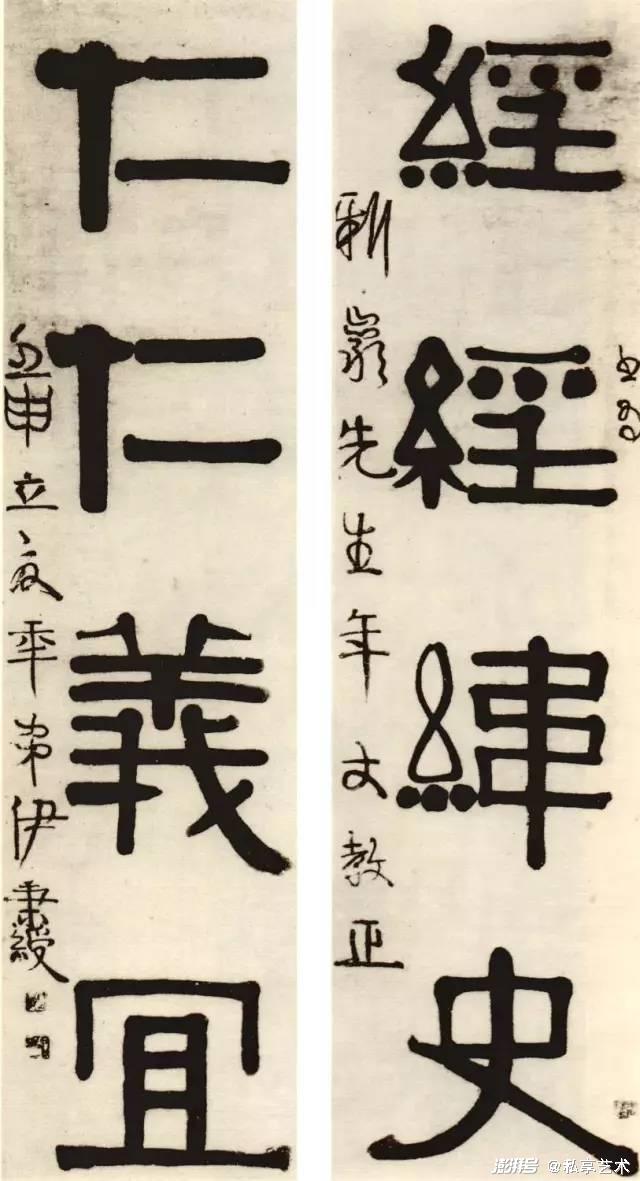 經經緯史
先生年丈教正
仁仁義宜
申立夏年弟伊秉綬
澎湃号 @私享艺术